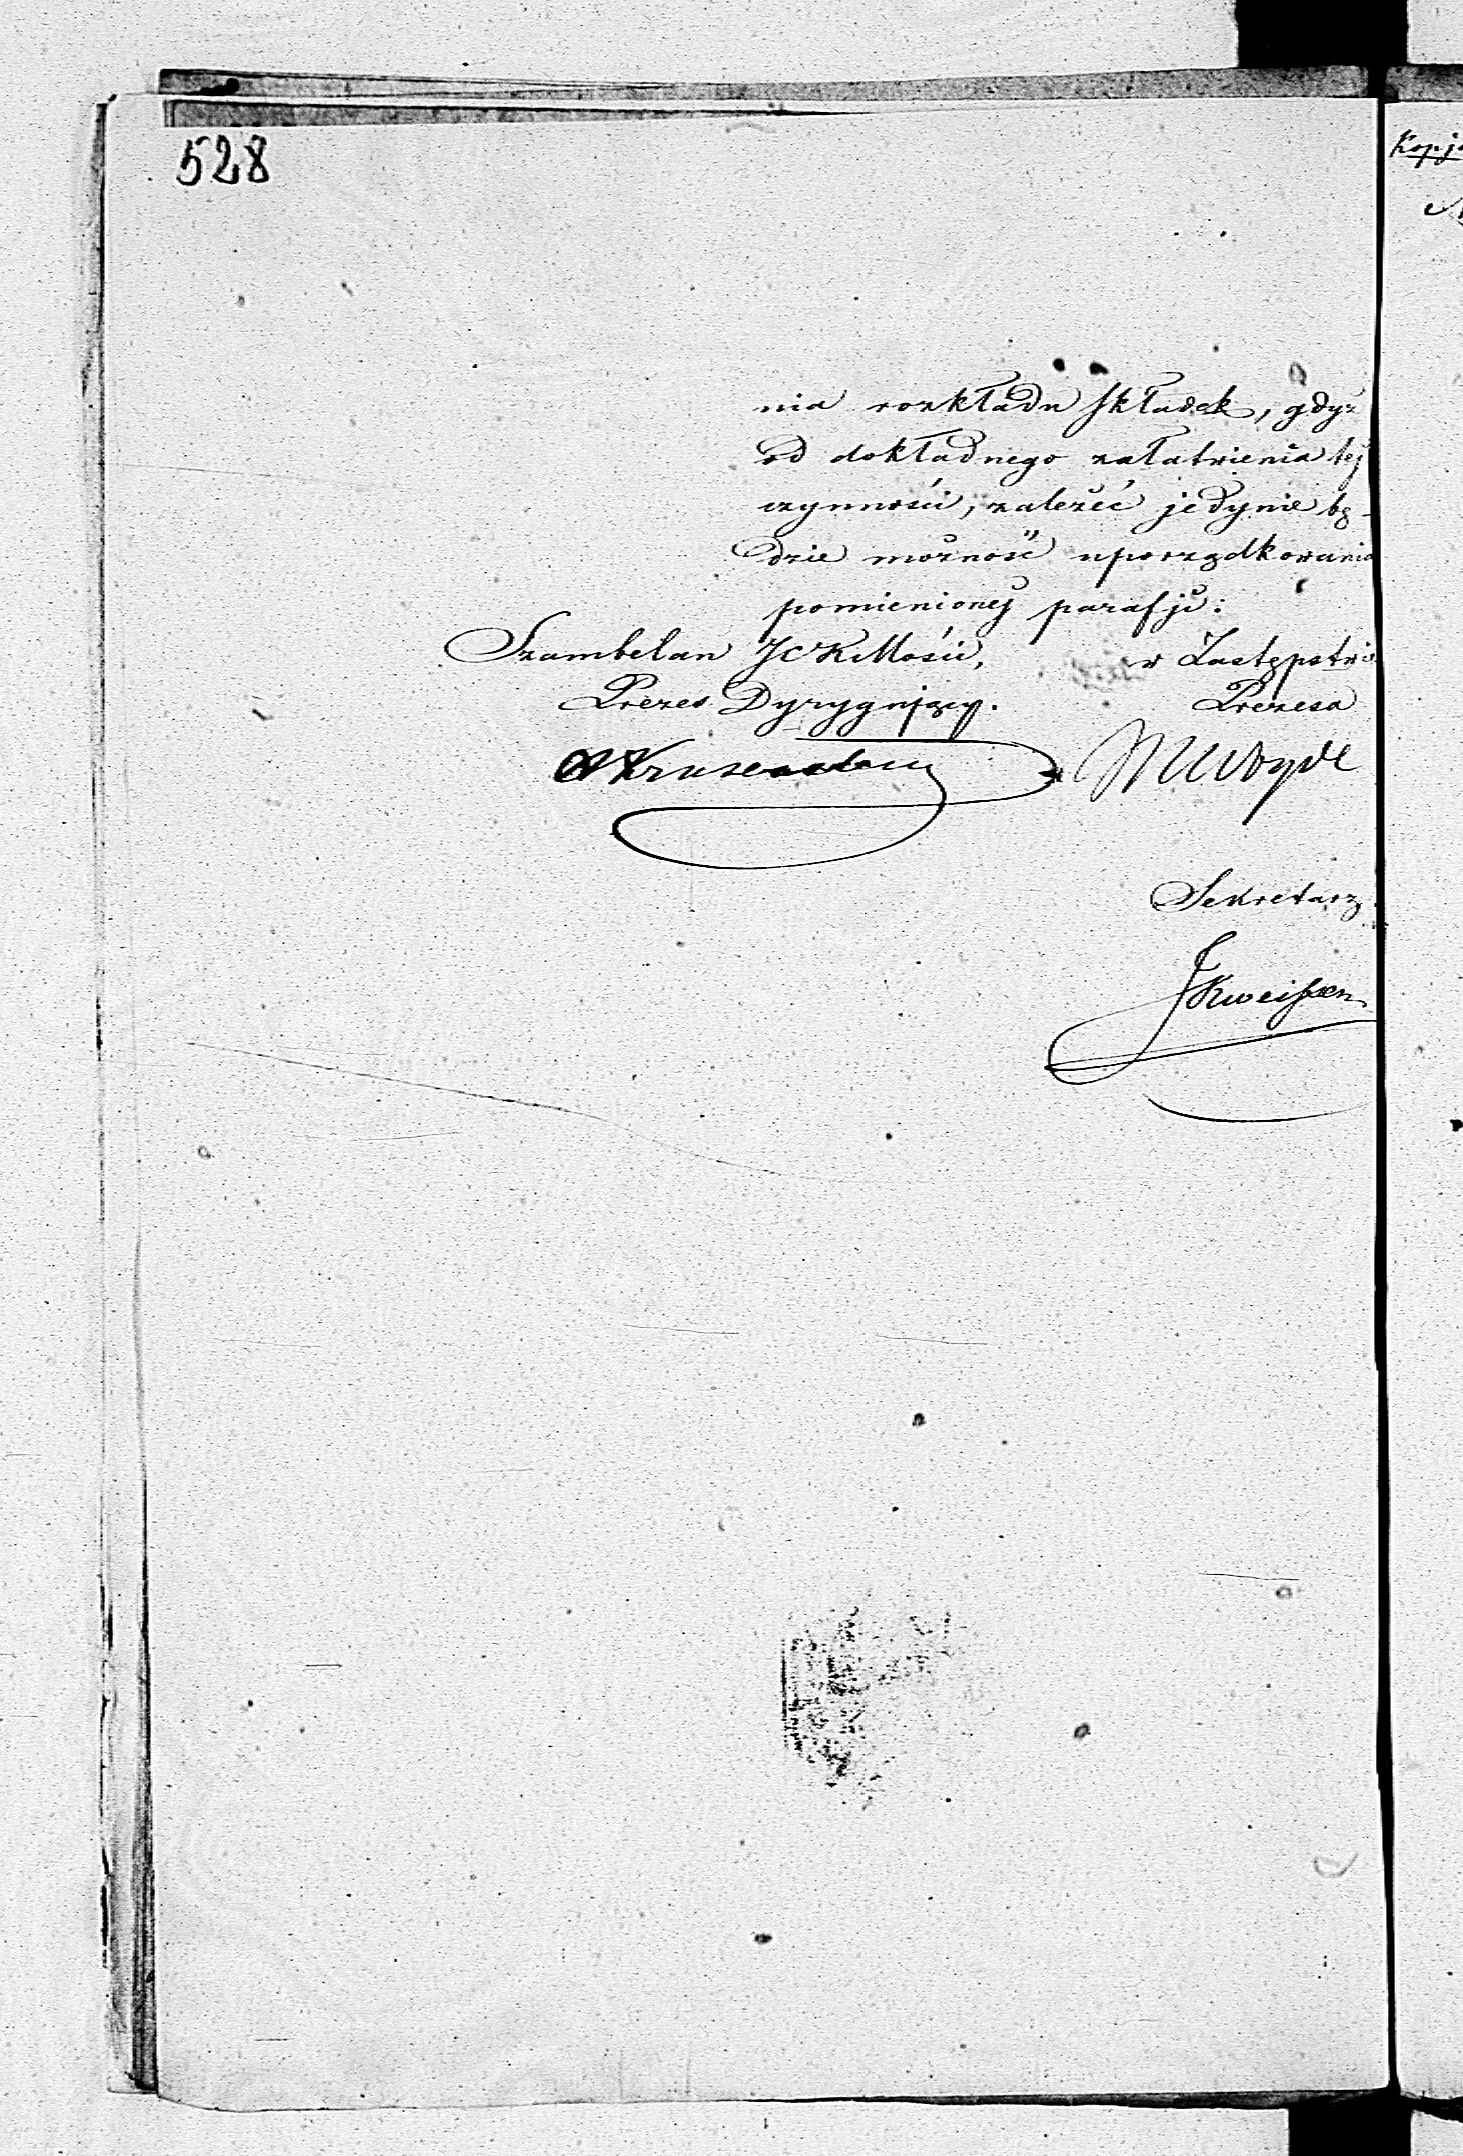 528
nia rozkładu składek, gdyż
od dokładnego załatwienia tej
czynności, zależeć jedynie bę-
dzie możność uporządkowania
pomienionej parafji:
Szambelan JCKMości, w Zastępstwie
Prezes Dyrygujący. Prezesa
Sekretarz
Kopja